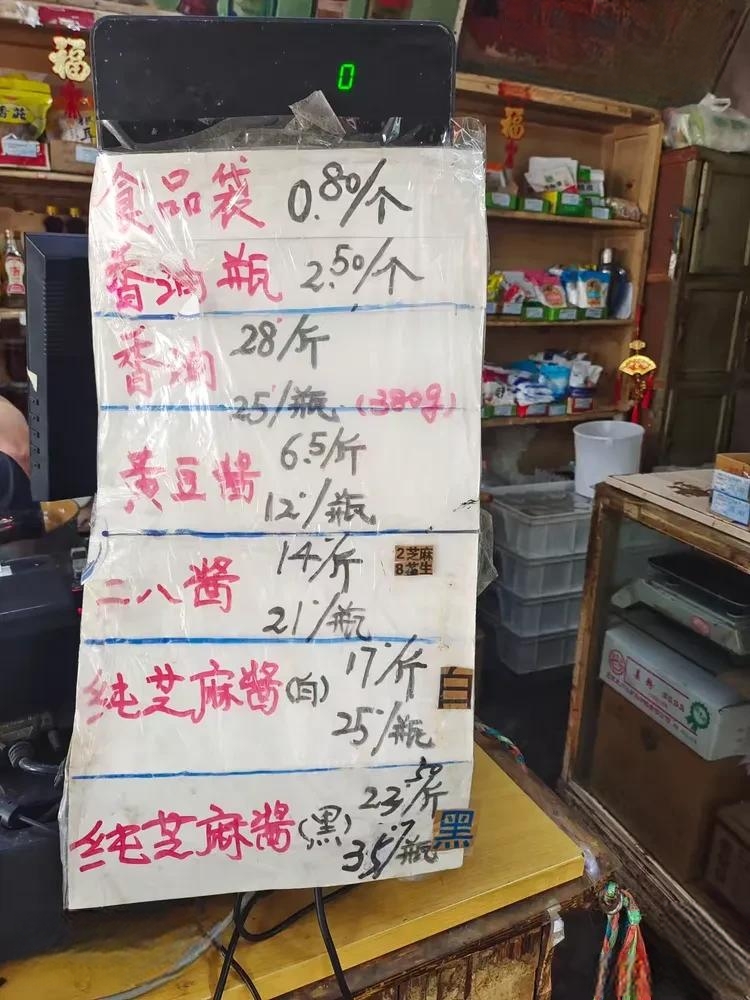 0
福
福
食品袋 0.80/个
香油瓶 2.50/个
香油 28/斤
25/瓶 (380g)
黄豆酱 6.5/斤
12/瓶
二八酱 14/斤
2芝麻
8花生
21/瓶
纯芝麻酱(白) 17/斤
白
25/瓶
纯芝麻酱(黑) 23.50/斤
黑
35/瓶